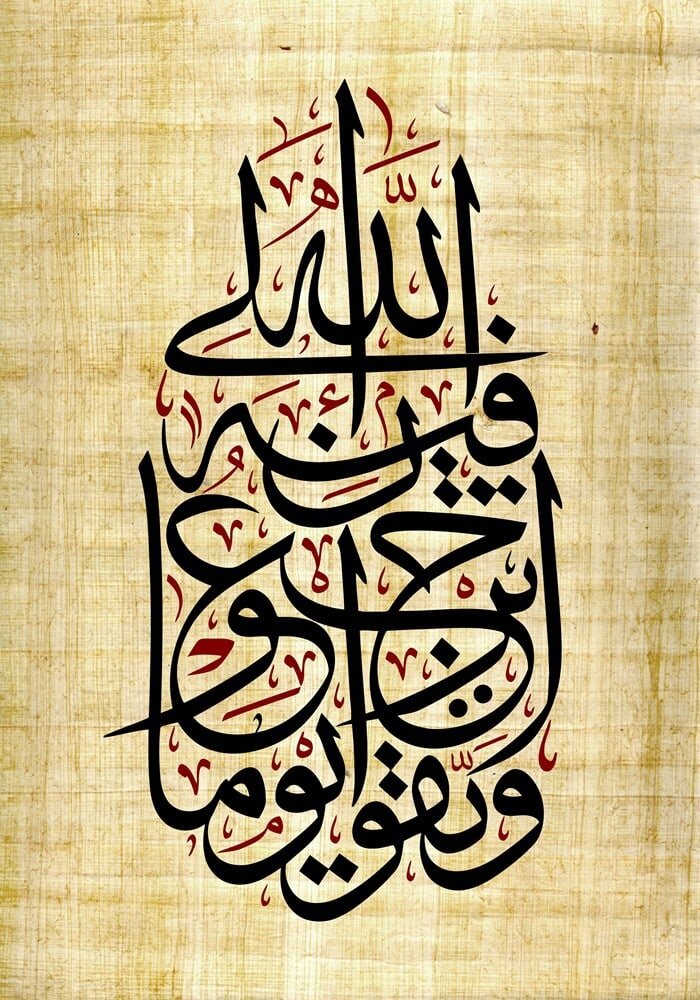 واتقوا يوما
ترجعون
فيه إلى
الله